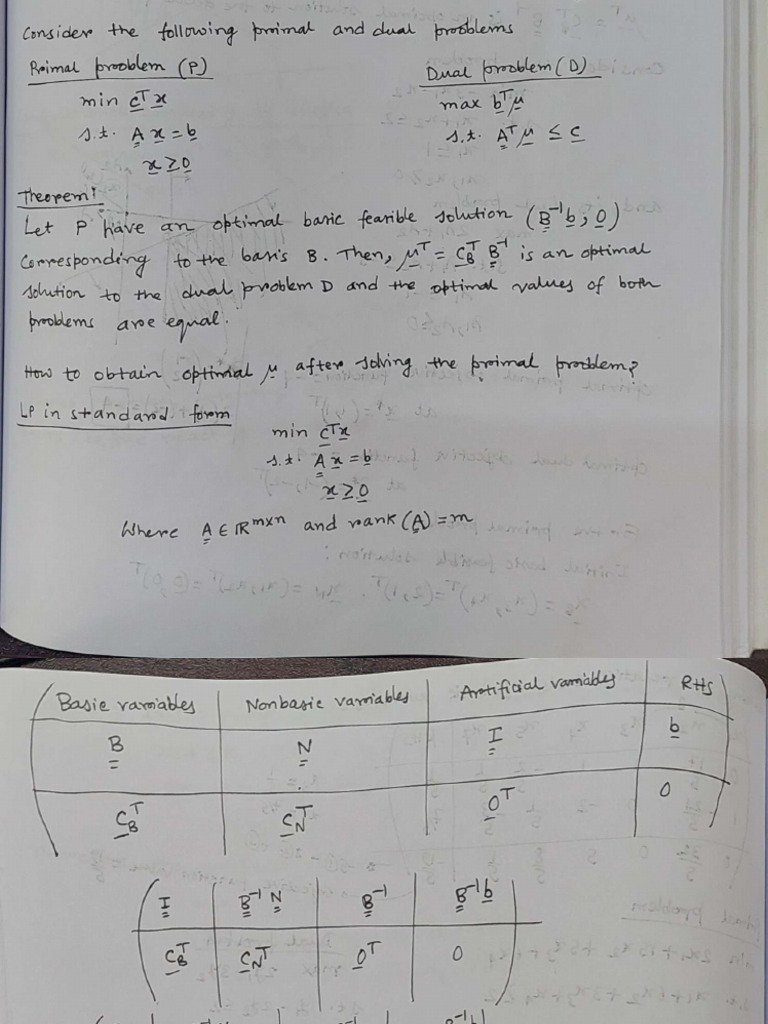 Consider the following primal and dual problems
Primal problem (P)
Dual problem (D)
min c^T x
max b^T μ
s.t. A x = b
s.t. A^T μ ≤ c
x ≥ 0
Theorem:
Let P have an optimal basic feasible solution (B^-1 b, 0)
Corresponding to the basis B. Then, μ^T = C_B^T B^-1 is an optimal
solution to the dual problem D and the optimal values of both
problems are equal.
How to obtain optimal μ after solving the primal problem?
LP in standard form
min c^T x
s.t. A x = b
x ≥ 0
Where A ∈ R^m×n and rank (A) = m
Basic variables Nonbasic variables Artificial variables RHS
B N I b
C_B^T C_N^T 0^T 0
I B^-1 N B^-1 B^-1 b
C_B^T C_N^T 0^T 0